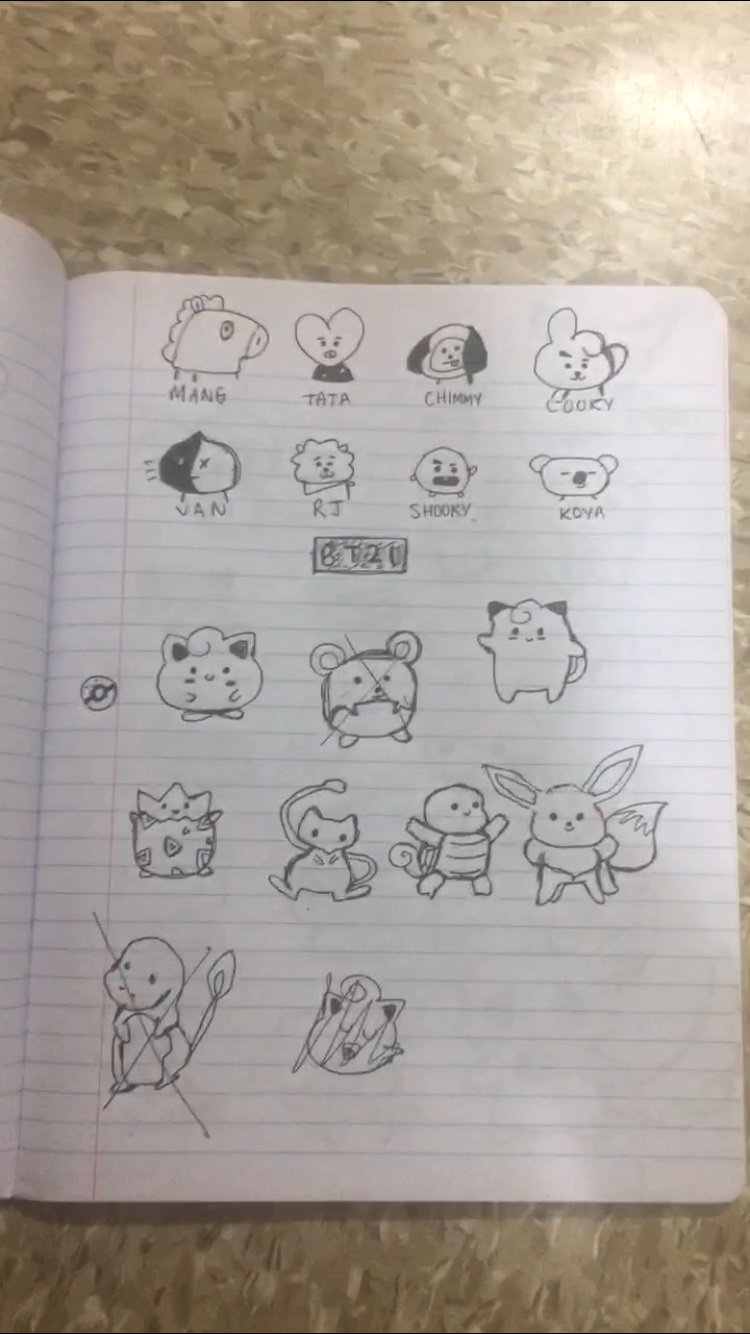 MANG TATA CHIMMY COOKY
VAN RJ SHOOKY KOYA
BT21